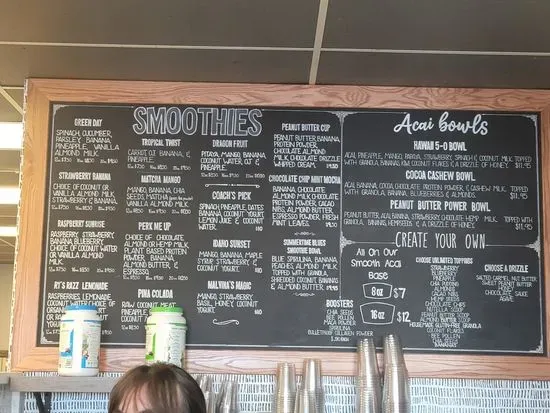 SMOOTHIES
GREEN DAY
SPINACH, CUCUMBER,
PARSLEY, BANANA,
PINEAPPLE, VANILLA
ALMOND MILK.
STRAWBERRY BANANA
CHOICE OF COCONUT OR
VANILLA ALMOND MILK,
STRAWBERRY, BANANA.
RASPBERRY SUNRISE
RASPBERRY, STRAWBERRY,
BANANA, BLUEBERRY,
CHOICE OF COCONUT WATER
OR VANILLA ALMOND MILK.
RJ'S BUZZ LEMONADE
RASPBERRIES, LEMONADE,
COCONUT WATER, CHOICE OF
TROPICAL TWIST
CARROT, O.J., BANANA, &
PINEAPPLE.
MATCHA MANGO
MANGO, BANANA, CHIA
SEEDS, MATCHA
VANILLA ALMOND MILK
PERK ME UP
CHOICE OF CHOCOLATE,
ALMOND OR HEMP MILK,
PLANT BASED PROTEIN
POWDER, BANANA,
ESPRESSO.
PINA COLADA
RAW COCONUT MEAT,
DRAGON FRUIT
PITAYA, MANGO, BANANA,
COCONUT WATER, O.J. &
PINEAPPLE.
COACH'S PICK
SPINACH, PINEAPPLE, DATES
BANANA, COCONUT YOGURT,
LEMON JUICE & COCONUT
WATER.
IDAHO SUNSET
MANGO, BANANA, MAPLE
SYRUP, STRAWBERRY,
COCONUT YOGURT.
MALVINA'S MAGIC
MANGO, STRAWBERRY,
BASIL, HONEY, COCONUT
YOGURT.
PEANUT BUTTER CUP
PEANUT BUTTER, BANANA,
PROTEIN POWDER,
CHOCOLATE ALMOND
MILK, CHOCOLATE DRIZZLE
WHIPPED CREAM.
CHOCOLATE CHIP MINT MOCHA
BANANA, CHOCOLATE
ALMOND MILK, CHOCOLATE
PROTEIN POWDER, CACAO
NIBS, ALMOND BUTTER,
ESPRESSO POWDER, FRESH
MINT LEAVES.
SUMMERTIME BLUES
SMOOTHIE BOWL
BLUE SPIRULINA, BANANA,
PEACHES, ALMOND MILK,
TOPPED WITH GRANOLA,
SHREDDED COCONUT, BANANA
& ALMONDS.
BOOSTERS
CHIA SEEDS
BEE POLLEN
MACA POWDER
SPIRULINA
BULLETPROOF COLLAGEN POWDER
Acai bowls
HAWAII 5-0 BOWL
ACAI, PINEAPPLE, MANGO, PAPAYA, STRAWBERRY, SPINACH, & COCONUT MILK. TOPPED
WITH GRANOLA, BANANA, RAW COCONUT FLAKES & DRIZZLE OF HONEY. $11.95
COCOA CASHEW BOWL
ACAI, BANANA, COCOA, CHOCOLATE PROTEIN POWDER, & CASHEW MILK. TOPPED
WITH GRANOLA, BANANA, BLUEBERRIES & ALMONDS. $11.95
PEANUT BUTTER POWER BOWL
PEANUT BUTTER, ACAI, BANANA, STRAWBERRY, CHOCOLATE HEMP MILK. TOPPED WITH
GRANOLA, BANANAS, HEMPSEEDS, & A DRIZZLE OF HONEY. $11.95
CREATE YOUR OWN
All On Our
Smooth Acai
Base
8oz $7
16oz $12
CHOOSE UNLIMITED TOPPINGS
STRAWBERRY
BLUEBERRY
PINEAPPLE
CHIA PUDDING
ALMONDS
CACAO NIBS
HEMP SEEDS
CHOCOLATE CHIPS
NUTELLA SCOOP
PEANUT BUTTER SCOOP
ALMOND BUTTER SCOOP
HOUSEMADE GLUTEN-FREE GRANOLA
COCONUT FLAKES
BEE POLLEN
CHIA SEEDS
BANANAS
CHOOSE A DRIZZLE
SALTED CARMEL NUT BUTTER
SWEET PEANUT BUTTER
HONEY
CHOCOLATE SAUCE
AGAVE